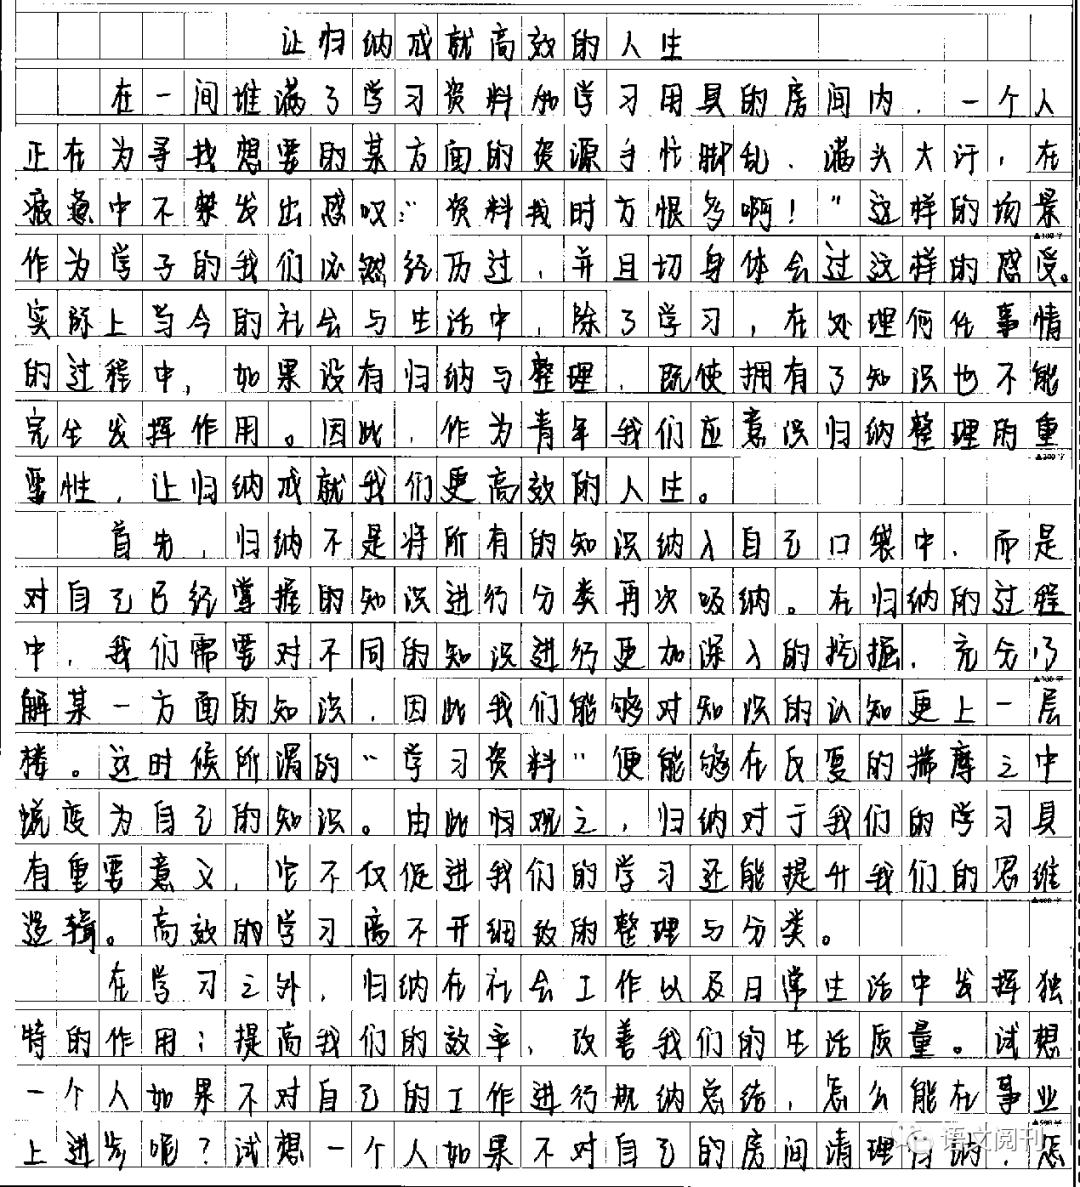 让归纳成就高效的人生
在一间堆满了学习资料和学习用具的房间内,一个人
正在为寻找想要的某方面的资源手忙脚乱、满头大汗,在
疲惫中不禁发出感叹:“资料找时方恨多啊!”这样的场景
作为学子的我们必然经历过,并且切身体会过这样的感受。
实际上当今的社会与生活中,除了学习,在处理何任事情
的过程中,如果没有归纳与整理,既使拥有了知识也不能
完全发挥作用。因此,作为青年我们应意识归纳整理的重
要性,让归纳成就我们更高效的人生。
首先,归纳不是将所有的知识纳入自己口袋中,而是
对自己已经掌握的知识进行分类再次吸纳。在归纳的过程
中,我们需要对不同的知识进行更加深入的挖掘,充分了
解某一方面的知识,因此我们能够对知识的认知更上一层
楼。这时候所谓的“学习资料”便能够在反复的揣摩之中
蜕变为自己的知识。由此归观之,归纳对于我们的学习具
有重要意义,它不仅促进我们的学习还能提升我们的思维
逻辑。高效的学习离不开细致的整理与分类。
在学习之外,归纳在社会工作以及日常生活中发挥独
特的作用;提高我们的效率,改善我们的生活质量。试想
一个人如果不对自己的工作进行规纳总结,怎么能在事业
上进步呢?试想一个人如果不对自己的房间清理归纳,怎
语文阅刊